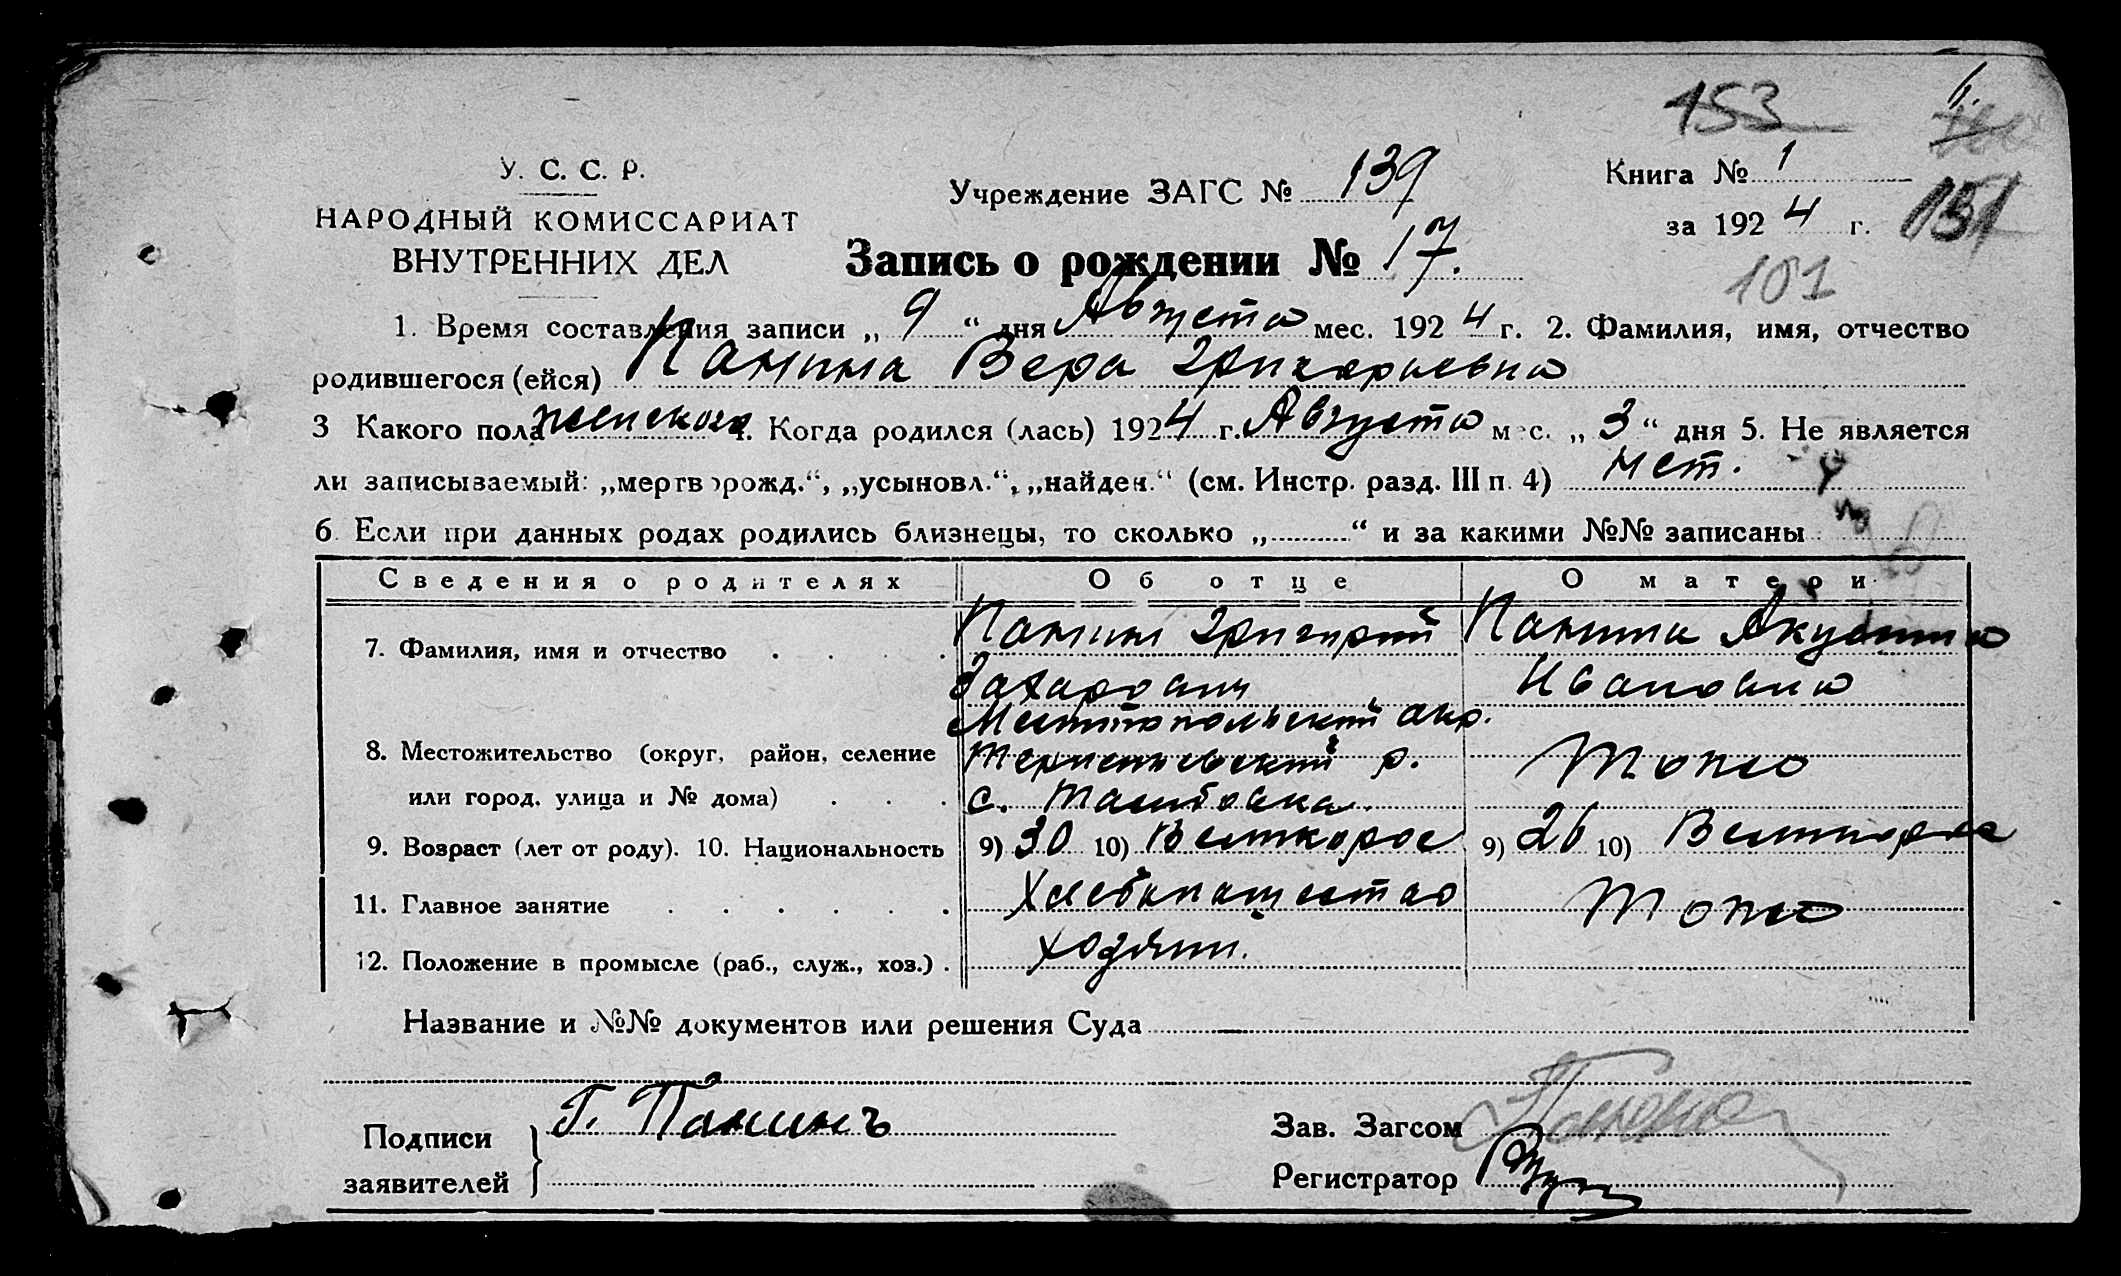 153
У. С. С. Р.
НАРОДНЫЙ КОМИССАРИАТ
ВНУТРЕННИХ ДЕЛ
Учреждение ЗАГС № 139
Книга № 1
за 1924 г. 151
Запись о рождении № 17.
101
1. Время составления записи „ 9 “ дня Августа мес. 1924 г. 2. Фамилия, имя, отчество
родившегося (ейся) Панина Вера Григорьевна
3 Какого пола женского 4. Когда родился (лась) 1924 г. Августа мес. „ 3 “ дня 5. Не является
ли записываемый: „мертворожд.“, „усыновл.“, „найден.“ (см. Инстр. разд. III п. 4) нет.
6. Если при данных родах родились близнецы, то сколько „ “ и за какими №№ записаны
Сведения о родителях Об отце О матери
7. Фамилия, имя и отчество Панин Григорий Панина Акулина
Захарович Ивановна
Мелитопольский окр.
8. Местожительство (округ, район, селение р. Тоже
или город, улица и № дома) с.
9. Возраст (лет от роду). 10. Национальность 9) 30 10) Великорос 9) 26 10) Великорос
11. Главное занятие Хлебопашество Тоже
12. Положение в промысле (раб., служ., хоз.) хозяин.
Название и №№ документов или решения Суда —
Подписи Г. Панинъ Зав. Загсом
заявителей Регистратор